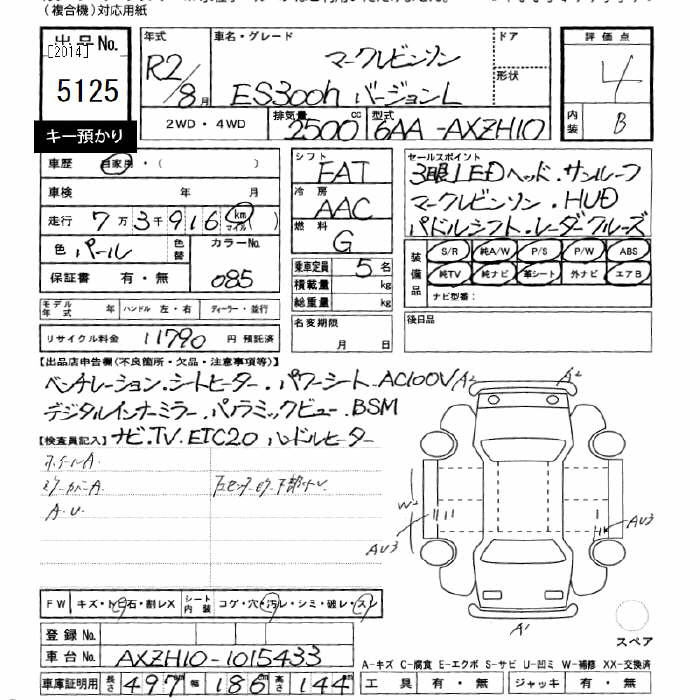 (複合機)対応用紙
出品No. [2014] 5125
キー預かり
年式 R2/8月
車名・グレード マークレビンソン
ES300h バージョンL
ドア
形状
評価点 4
内装 B
2WD・4WD 排気量 2500cc 型式 6AA-AXZH10
車歴 自家用・( )
車検 年 月
走行 7万3千916 km マイル )
色 パール 色替 カラーNo. 085
保証書 有・無
モデル年式 年 ハンドル 左・右 ディーラー・並行
リサイクル料金 11790 円 預託済
シフト FAT
冷房 AAC
燃料 G
乗車定員 5名
積載量 kg
総重量 kg
名変期限 月 日
セールスポイント
3眼LEDヘッド.サンルーフ
マークレビンソン.HUD
パドルシフト.レーダクルーズ
装備品 S/R 純A/W P/S P/W ABS
純TV 純ナビ 革シート 外ナビ エアB
ナビ型番:
後日品
【出品店申告欄(不良箇所・欠品・注意事項等)】
ベンチレーション.シートヒーター.パワーシート.AC100V
デジタルインナーミラー.パノラミックビュー.BSM
【検査員記入】ナビ.TV.ETC2.0 ハンドルヒーター
A.U.
A2 A2
W2
AU3 AU3
A1
スペア
FW キズ・トビ石・割レX シート内装 コゲ・穴・汚レ・シミ・破レ・スレ
登録No.
車台No. AXZH10-1015433
車庫証明用 長さ 497 幅 186 高さ 144
A-キズ C-腐食 E-エクボ S-サビ U-凹ミ W-補修 XX-交換済
工具 有・無 ジャッキ 有・無